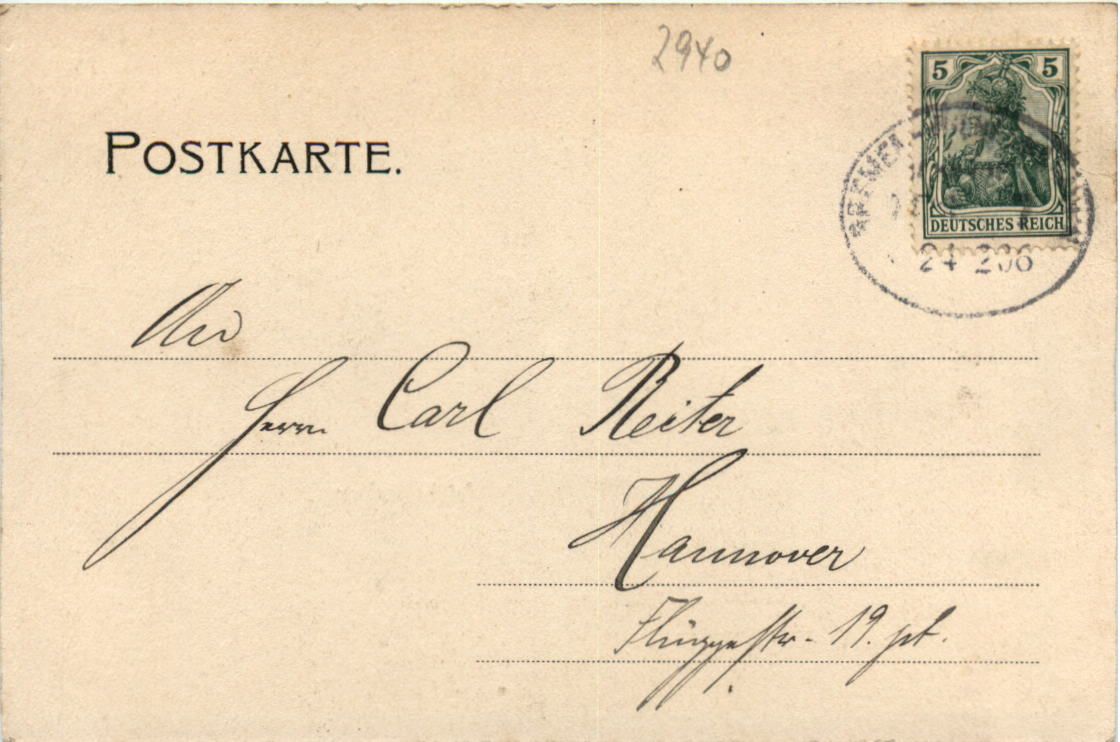 2940
5 5
POSTKARTE.
DEUTSCHES REICH
24 2 06
An
Herrn Carl Reiter
Hannover
Flüggestr. 19. pt.